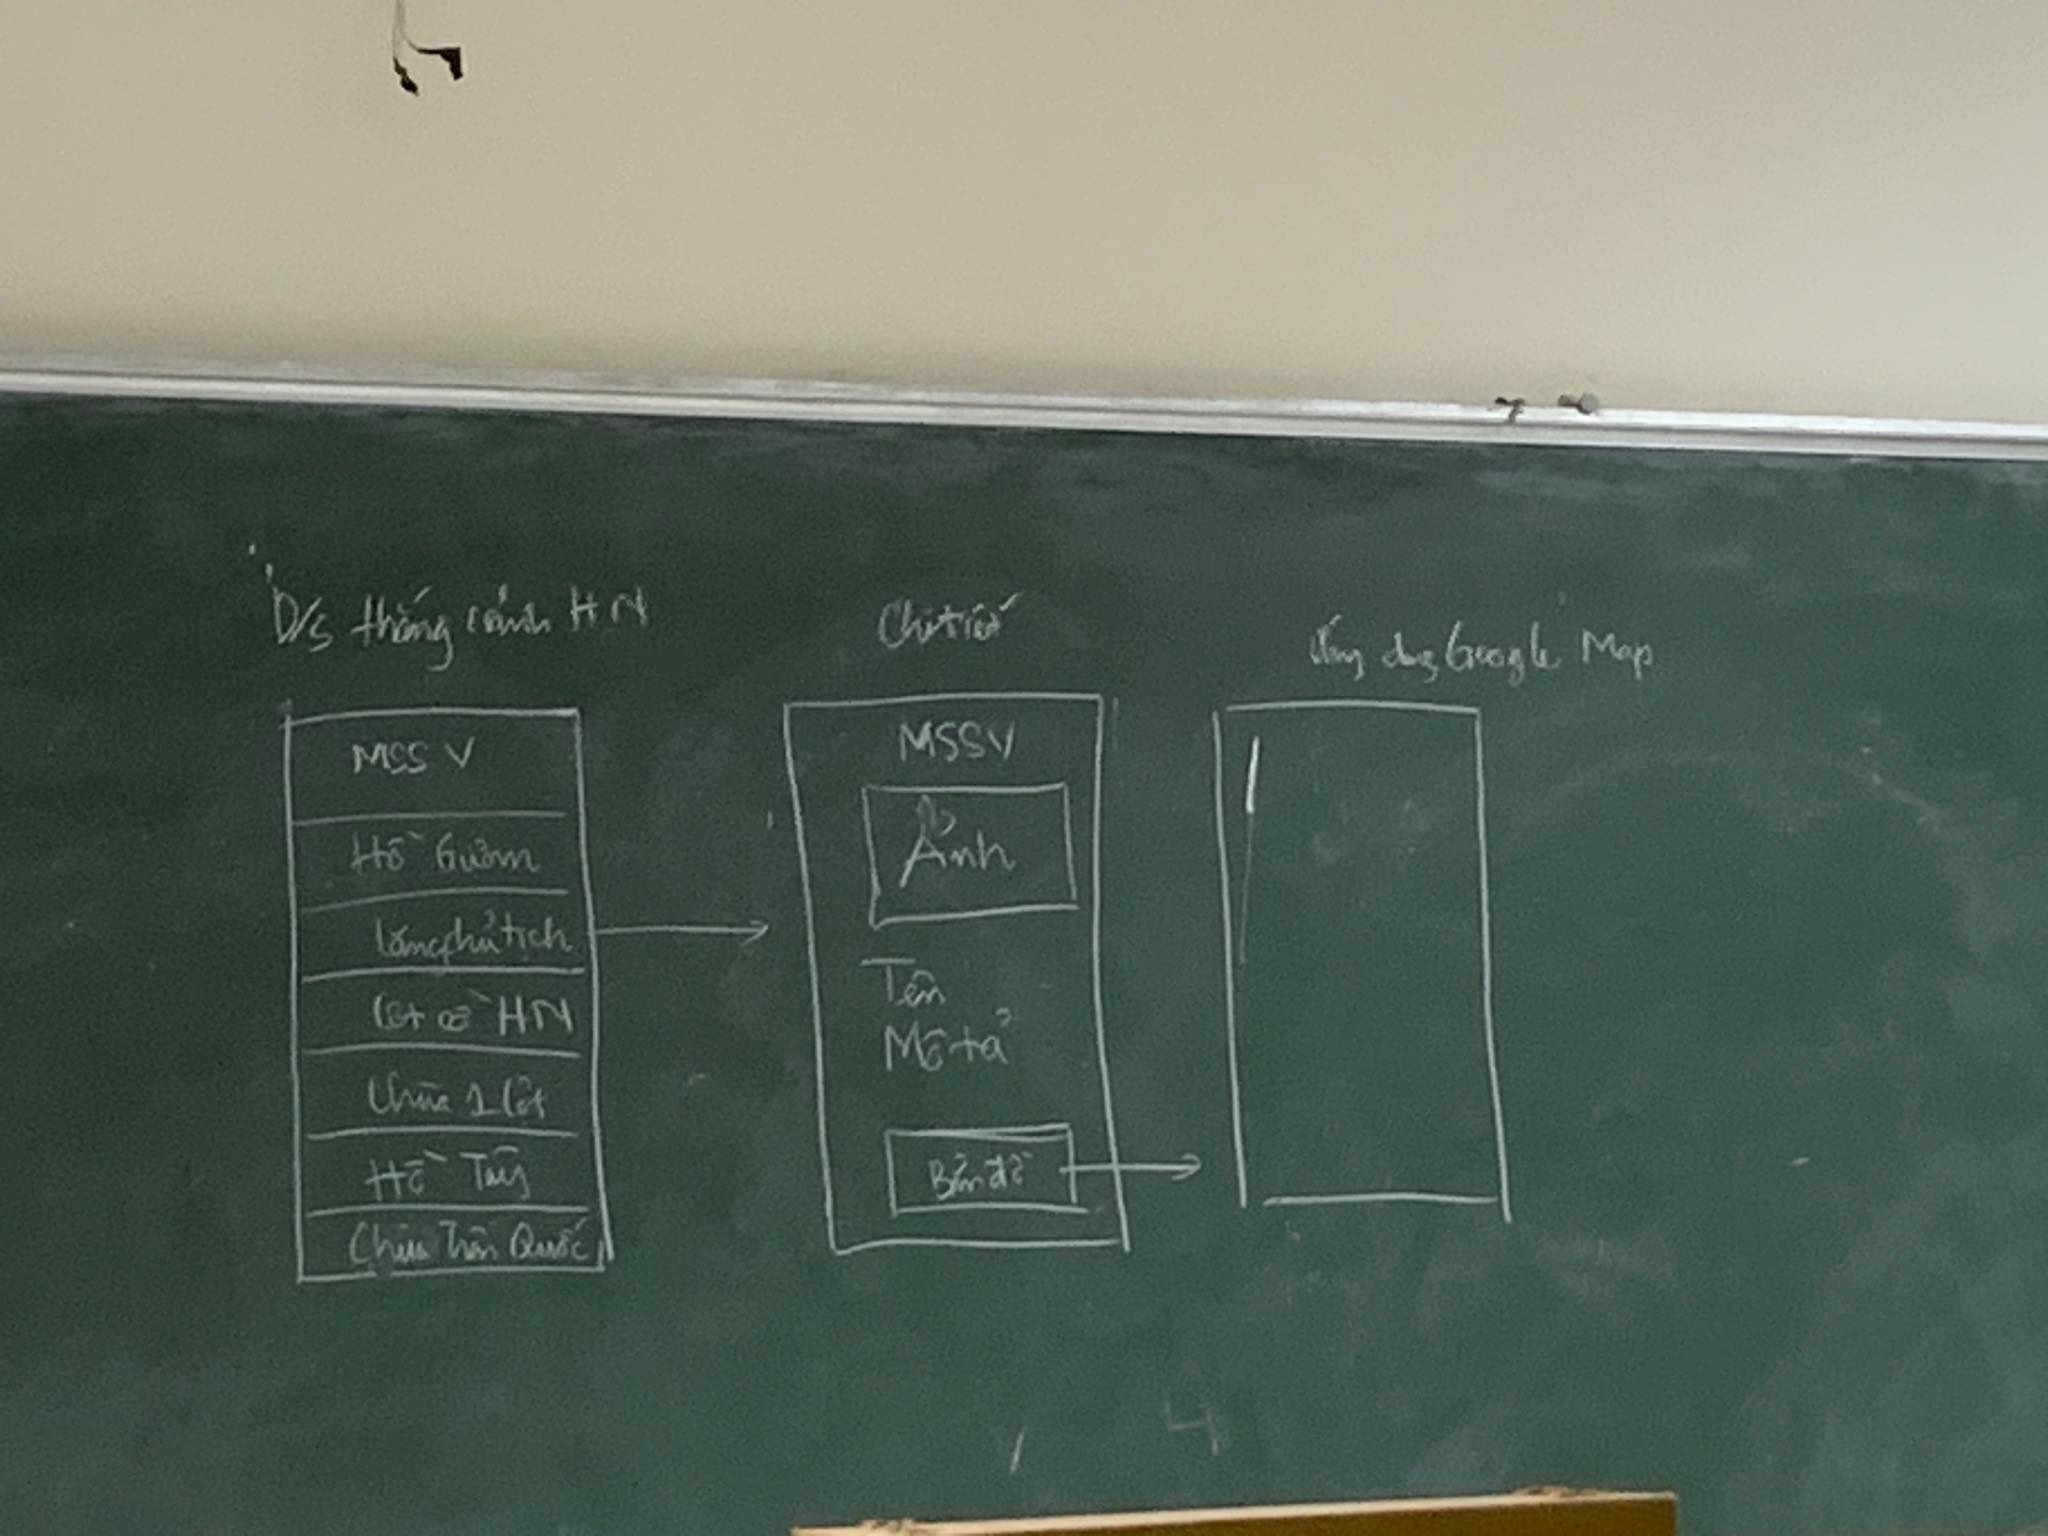 D/s thắng cảnh HN
MSSV
Hồ Gươm
Lăng chủ tịch
Cột cờ HN
Chùa 1 Cột
Hồ Tây
Chùa Trấn Quốc
Chi tiết
MSSV
Ảnh
Tên
Mô tả
Bản đồ
Ứng dụng Google Map